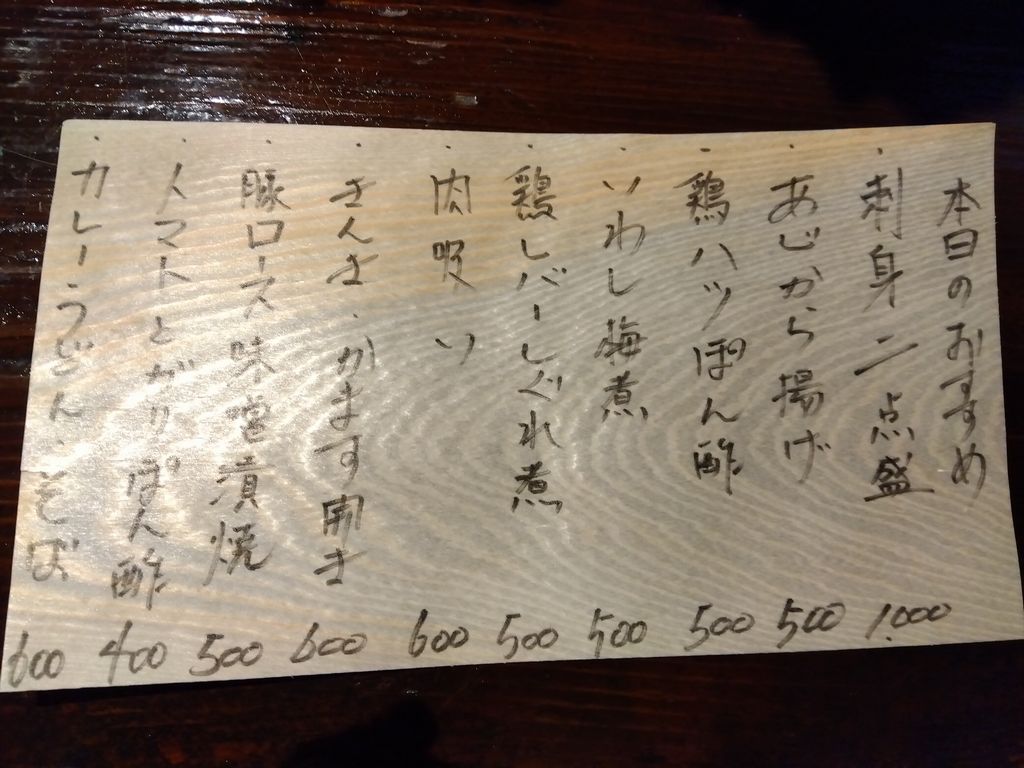 本日のおすすめ
・刺身二点盛 1.000
・あじから揚げ 500
・鶏ハツぽん酢 500
・いわし梅煮 500
・鶏レバーしぐれ煮 500
・肉吸い 600
・さんま・かます開き 600
・豚ロース味噌漬焼 500
・トマトとガリぽん酢 400
・カレーうどん・そば 600